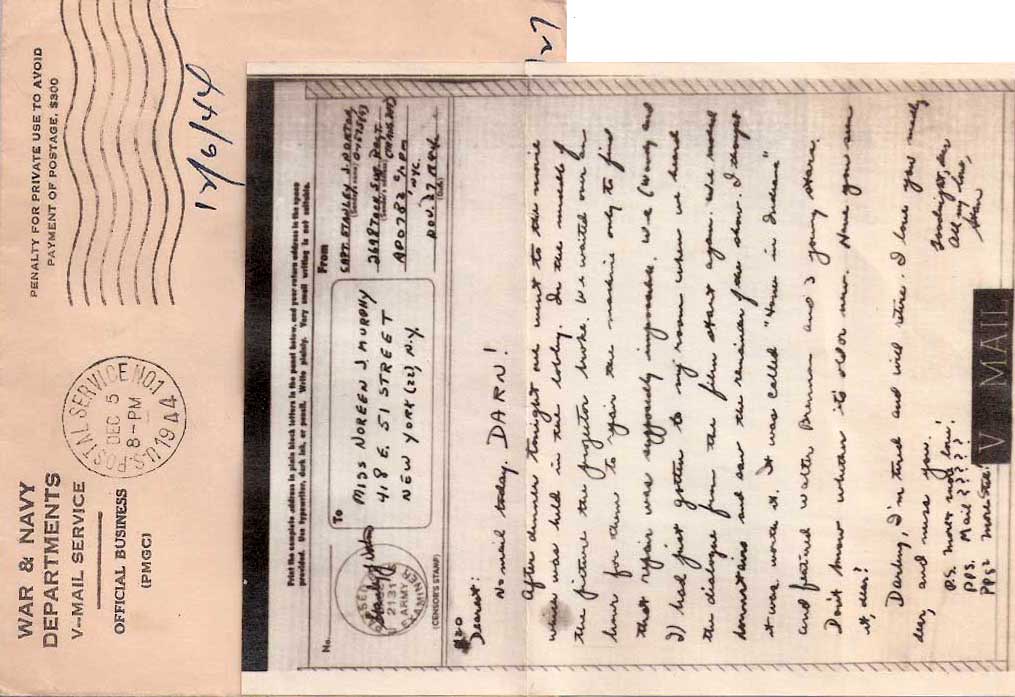 WAR & NAVY
DEPARTMENTS
V-MAIL SERVICE
OFFICIAL BUSINESS
(PMGC)
U.S. POSTAL SERVICE NO. 1
DEC 5
8-PM
1944
PENALTY FOR PRIVATE USE TO AVOID
PAYMENT OF POSTAGE, $300
12/6/44
127
Print the complete address in plain block letters in the panel below, and your return address in the space
provided. Use typewriter, dark ink, or pencil. Write plainly. Very small writing is not suitable.
No.
2131
ARMY
EXAMINER
(CENSOR'S STAMP)
To
MISS NOREEN J. MURPHY
418 E. 51 STREET
NEW YORK (22), N.Y.
From
CAPT. STANLEY J.
(Sender's name)
APO 782 c/o PM
NYC.
NOV. 27 1944
(Date)
#20
Dearest:
No mail today. DARN!
After dinner tonight we went to the movie
which was held in the lobby. In the middle of
the picture the projector broke. We waited over an
hour for them to repair the machine only to find
that repair was supposedly impossible. We (Woody and
I) had just gotten to my room when we heard
the dialogue from the film start again. We went
downstairs and saw the remainder of the show. I thought
it was worth it. It was called "Home in Indiana"
and featured Walter Brennan and 3 young stars.
Don't know whether its old or new. Have you seen
it, dear?
Darling, I'm tired and will retire. I love you madly,
dear, and miss you.
Goodnight, dear
All my love,
Stan
P.S. more and more love!
PPS. Mail????
PPPS more still!
V MAIL